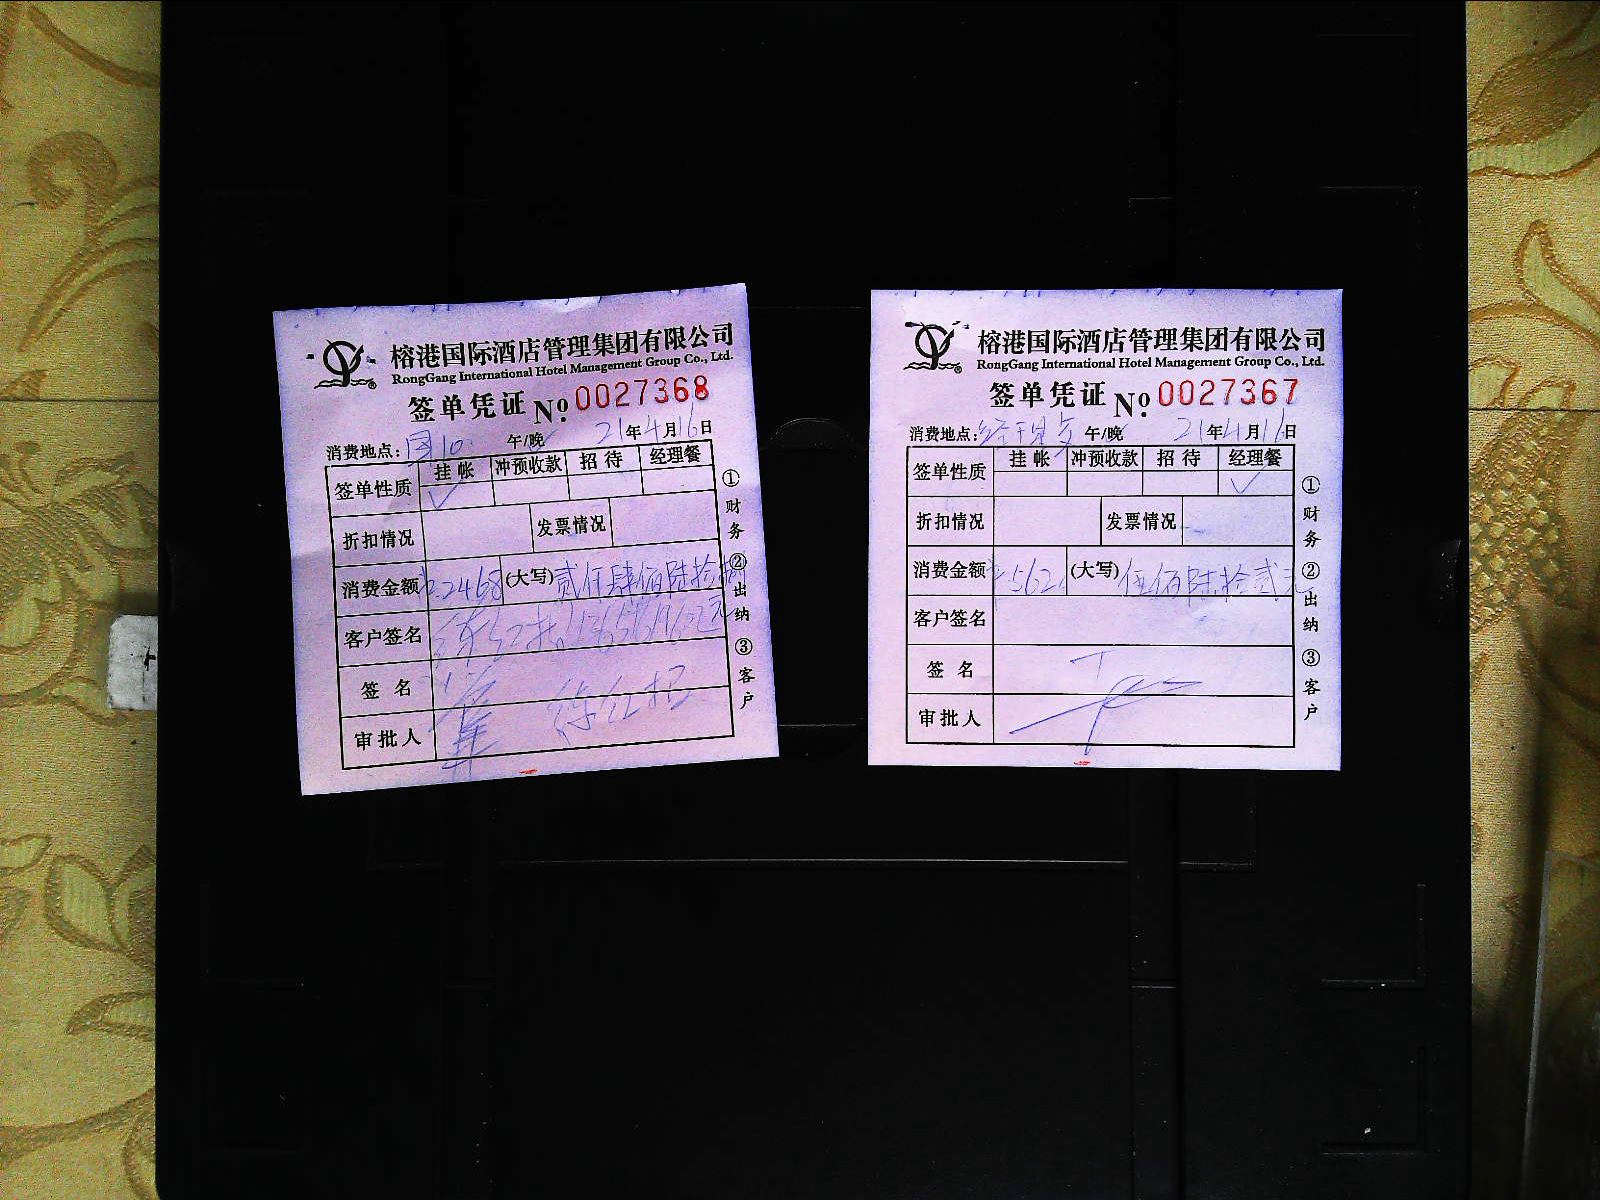 榕港国际酒店管理集团有限公司
RongGang International Hotel Management Group Co., Ltd.
签单凭证 №0027368
消费地点: 午/晚 21年4月16日
签单性质 挂帐 冲预收款 招待 经理餐
✓
折扣情况 发票情况
消费金额 2468 (大写) 贰仟肆佰陆拾捌
客户签名
签名
审批人
①财务 ②出纳 ③客户
榕港国际酒店管理集团有限公司
RongGang International Hotel Management Group Co., Ltd.
签单凭证 №0027367
消费地点: 午/晚 21年4月16日
签单性质 挂帐 冲预收款 招待 经理餐
✓
折扣情况 发票情况
消费金额 562 (大写) 伍佰陆拾贰元
客户签名
签名
审批人
①财务 ②出纳 ③客户